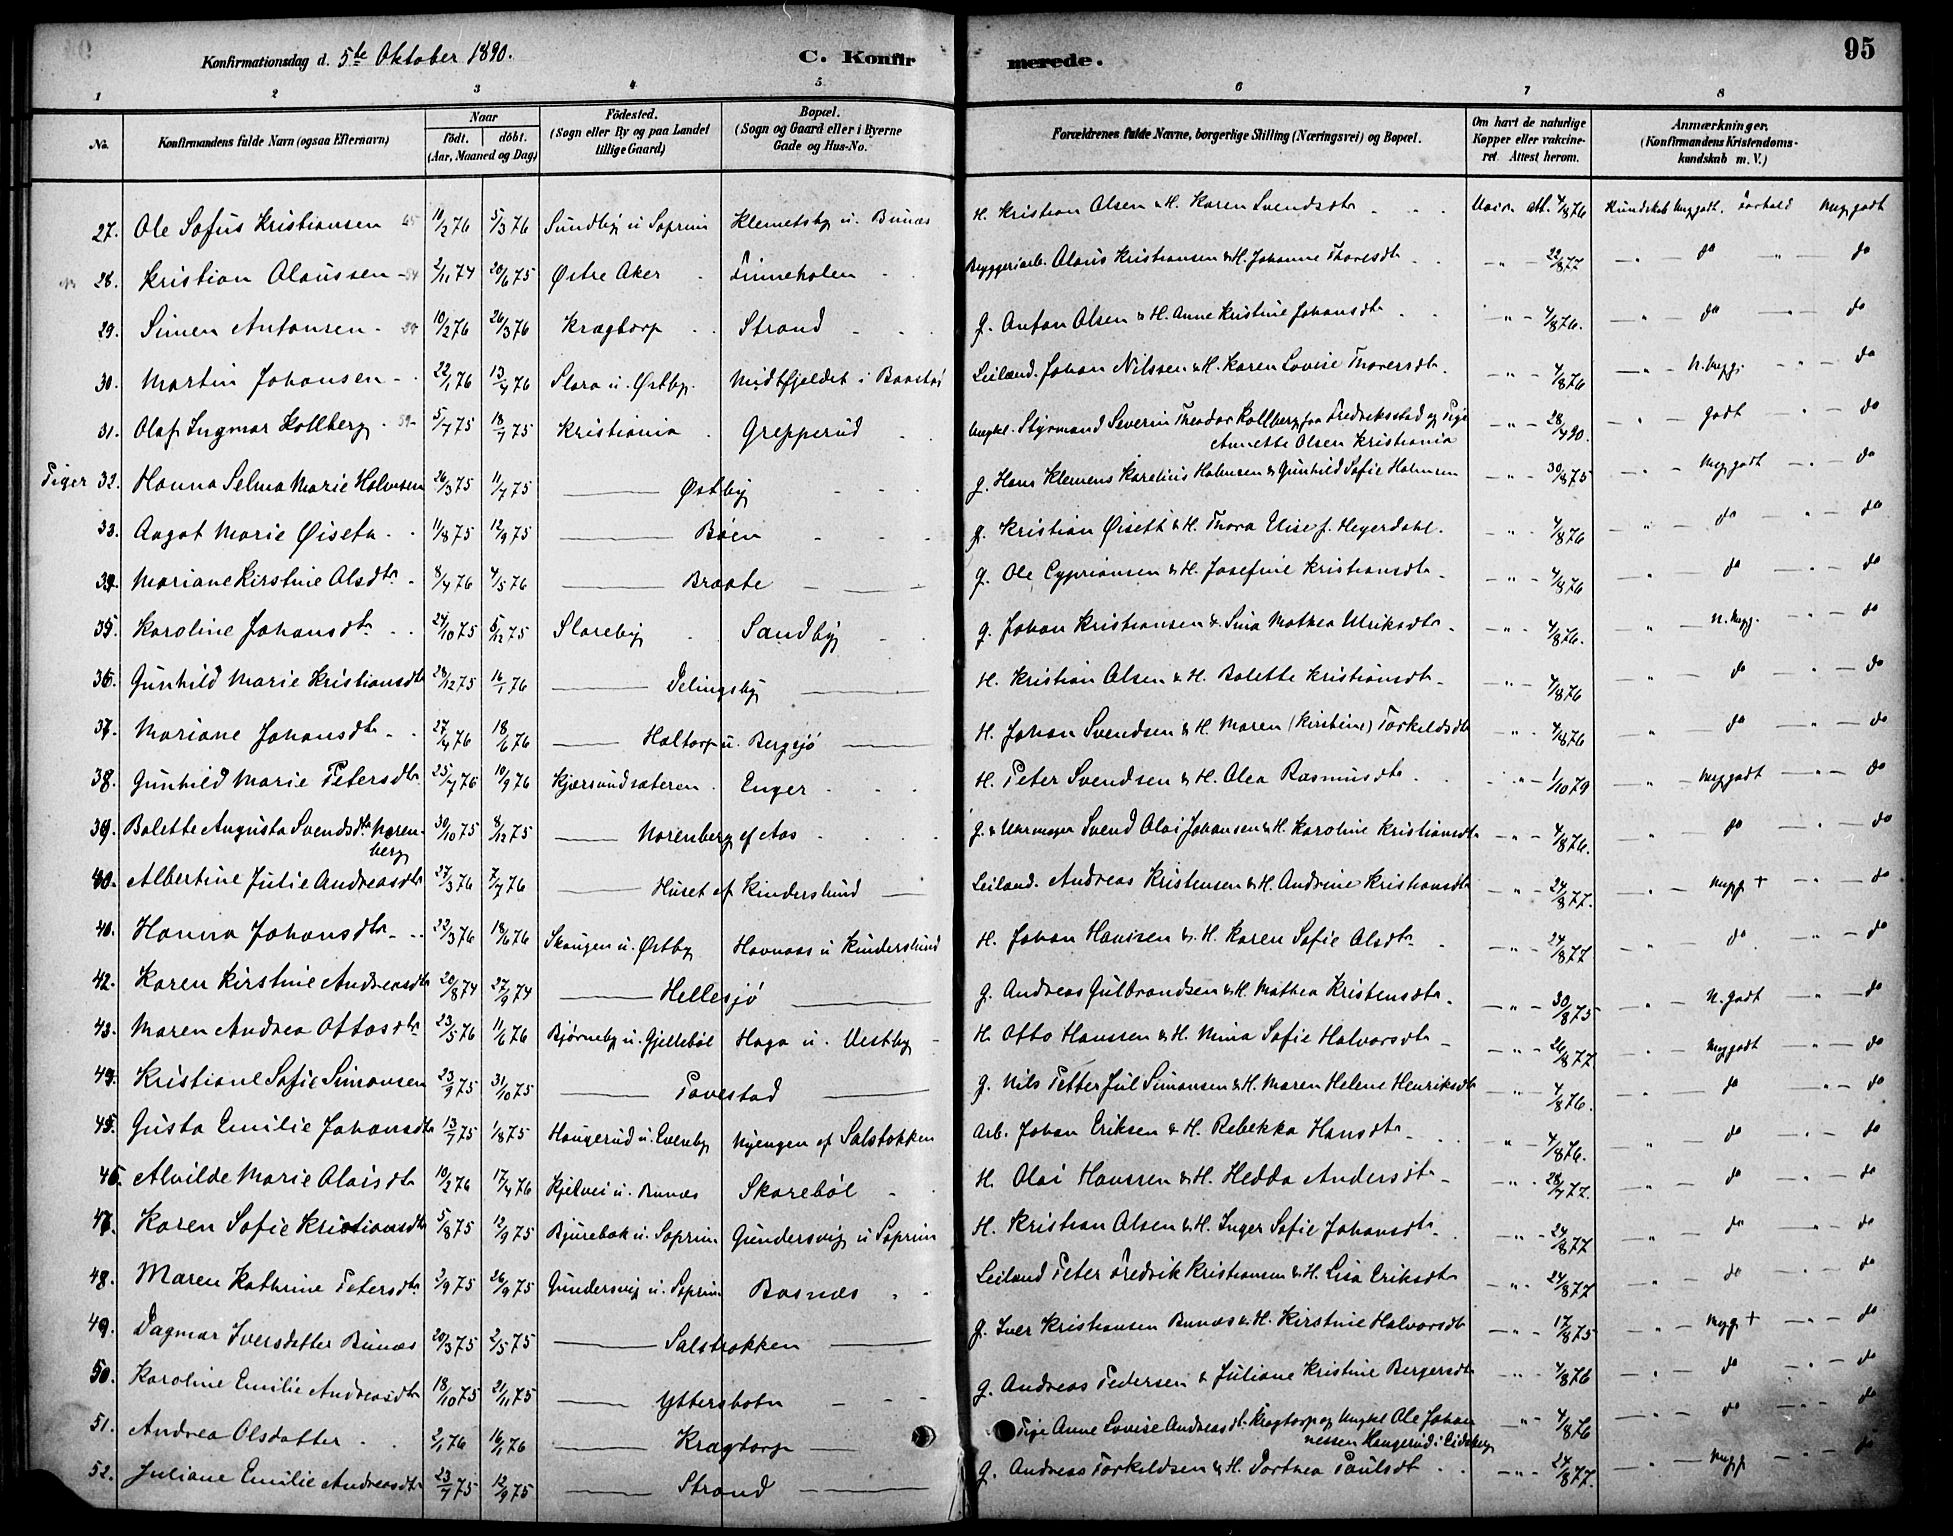 95
Konfirmationsdag d. 5te Oktober 1890. C. Konfirmerede.
1 2 3 4 5 6 7 8
No. Konfirmandens fulde Navn (ogsaa Efternavn) Naar födt. döbt. (Aar, Maaned og Dag) Födested. (Sogn eller By og paa Landet tillige Gaard) Bopæl. (Sogn og Gaard eller i Byerne Gade og Hus-No. Forældrenes fulde Navne, borgerlige Stilling (Næringsvei) og Bopæl. Om havt de naturlige Kopper eller vakcineret. Attest herom. Anmærkninger. (Konfirmandens Kristendomskundskab m. V.)
27. Ole Sofus Kristiansen 10/2 76 5/3 76 Sundby u. Soprim Klemetsby u. Bunæs H. Kristian Olsen & H. Karen Svendsdtr Vacin. att. 4/8 76 Kundskab meg. godt. Forhold meg. godt
28. Kristian Olaussen 2/11 74 20/6 75 Østre Aker Finneholen Bryggeriarb. Olaus Kristiansen & H. Johanne Thoresdtr - " - 22/8 77 - " - do - " - do
29. Simen Antonsen 10/2 76 26/3 76 Kragtorp Strand G. Anton Olsen & H. Anne Kristine Johansdtr - " - 4/8 76. - " - do - " - do
30. Martin Johansen 22/1 76 13/4 76 Slora u. Østby Midtfjeldet i Baastad Leilænd. Johan Nilssen & H. Karen Lovise Thoresdtr - " - 4/8 76 - " - N. meg. - " - do
31. Olaf Ingmar Kollberg 5/7 75 18/7 75 Kristiania Grepperud Ungkl. Styrmand Severin Theodor Kollberg fra Fredriksstad og Pige
Annette Olsen Kristiania - " - 28/4 90. - " - godt - " - do
Piger 32. Hanna Selma Marie Holmsen 26/3 75 11/7 75 Østby G. Hans Klemens Karelius Holmsen & Gunhild Sofie Holmsen - " - 30/8 75 - " - meg godt - " - do
33. Aagot Marie Øiseth 11/8 75 12/9 75 Böen G. Kristian Øiseth & H. Thora Elise f. Heyerdahl. - " - 4/8 76 - " - do - " - do
34. Mariane Kirstine Olsdtr 8/4 76 4/5 76 Braate G. Ole Cypriansen & H. Josefine Kristiansdtr - " - 4/8 76 - " - do - " - do
35. Karoline Johansdtr 24/10 75 5/12 75 Slareby Sandby G. Johan Kristiansen & Sina Mathea Ulriksdtr - " - 4/8 76. - " - N. meg. - " - do
36. Gunhild Marie Kristiansdtr 28/12 75 16/1 76 Delingsby H. Kristian Olsen & H. Bolette Kristiansdtr - " - 4/8 76 - " - do - " - do
37. Mariane Johansdtr 27/4 76 18/6 76 Haltorp u. Bergsjö H. Johan Svendsen & H. Maren (Kirstine) Torkildsdtr - " - 4/8 76 - " - do - " - do
38. Gunhild Marie Petersdtr 25/7 76 10/9 76 Kjærsundsæteren Enger H. Peter Svendsen & H. Olea Rasmusdtr - " - 1/10 79 - " - meg godt - " - do
39. Bolette Augusta Svendsdtr Noren-
berg 30/10 75 8/12 75 Norenberg af Aas G. & Uhrmager Svend Olai Johansen & H. Karoline Kristiansdtr - " - 4/8 76. - " - do - " - do
40. Albertine Julie Andreasdtr 27/3 76 7/7 76 Huset af Kinderslund Leiland. Andreas Kristensen & H. Andrine Kristiansdtr - " - 24/8 77. - " - meg. + - " - do
41. Hanna Johansdtr 22/3 76 18/6 76 Skaugen u. Østby Havnaas u Kinderslund H. Johan Hansen & H. Karen Sofie Olsdtr - " - 24/8 77 - " - do - " - do
42. Karen Kirstine Andreasdtr 20/8 74 27/9 74 Hellesjö G. Andreas Gulbrandsen & H. Mathea Kristensdtr - " - 30/8 75 - " - N. godt - " - do
43. Maren Andrea Ottosdtr 23/5 76 11/6 76 Bjørneby u. Gjellebøl Haga u. Vestby H. Otto Hanssen & H. Mina Sofie Halvorsdtr - " - 26/8 77 - " - meg godt - " - do
44. Kristiane Sofie Simonsen 23/9 75 31/10 75 Tovestad G. Nils Petter Jul Simonsen & H. Maren Helene Henriksdtr - " - 4/8 76. - " - do - " - do
45. Gusta Emilie Johansdtr 13/7 75 1/8 75 Haugerud u. Evenby Nyengen af Salstokken Arb. Johan Eriksen & H. Rebekka Hansdtr - " - 4/8 76. - " - do - " - do
46. Alvilde Marie Olaisdtr 10/2 76 17/4 76 Kjelvei u. Bunæs Skarebøl H. Olai Hanssen & H. Hedda Andersdtr - " - 28/7 77. - " - do - " - do
47. Karen Sofie Kristiansdtr 5/8 75 12/9 75 Bjurebak u. Soprim Gundersvig u Soprim H. Kristian Olsen & H. Inger Sofie Johansdtr - " - 24/8 77 - " - do - " - do
48. Maren Kathrine Petersdtr 2/9 75 26/9 75 Gundersvig u. Soprim Bosnæs Leiland Peter Fredrik Kristiansen & H. Lisa Eriksdtr - " - 24/8 77 - " - do - " - do
49. Dagmar Iversdatter Bunæs 20/3 75 2/5 75 Salstokken G. Iver Kristiansen Bunæs & H. Kirstine Halvorsdtr - " - 17/8 75 - " - meg. + - " - do
50. Karoline Emilie Andreasdtr 18/10 75 21/11 75 Ytterbotn G. Andreas Pedersen & Juliane Kristine Bergersdtr - " - 4/8 76 - " - do - " - do
51. Andrea Olsdatter 2/1 76 16/1 76 Kragtorp Pige Anne Lovise Andreasdtr. Kragtorp og Ungkl Ole Johan
nessen Haugerud i Eidsberg - " - 4/8 76 - " - do - " - do
52. Juliane Emilie Andreasdtr 23/7 75 12/9 75 Strand G. Andreas Torkildsen & H. Dorthea Paulsdt - " - 24/8 77. - " - meg. - " - do